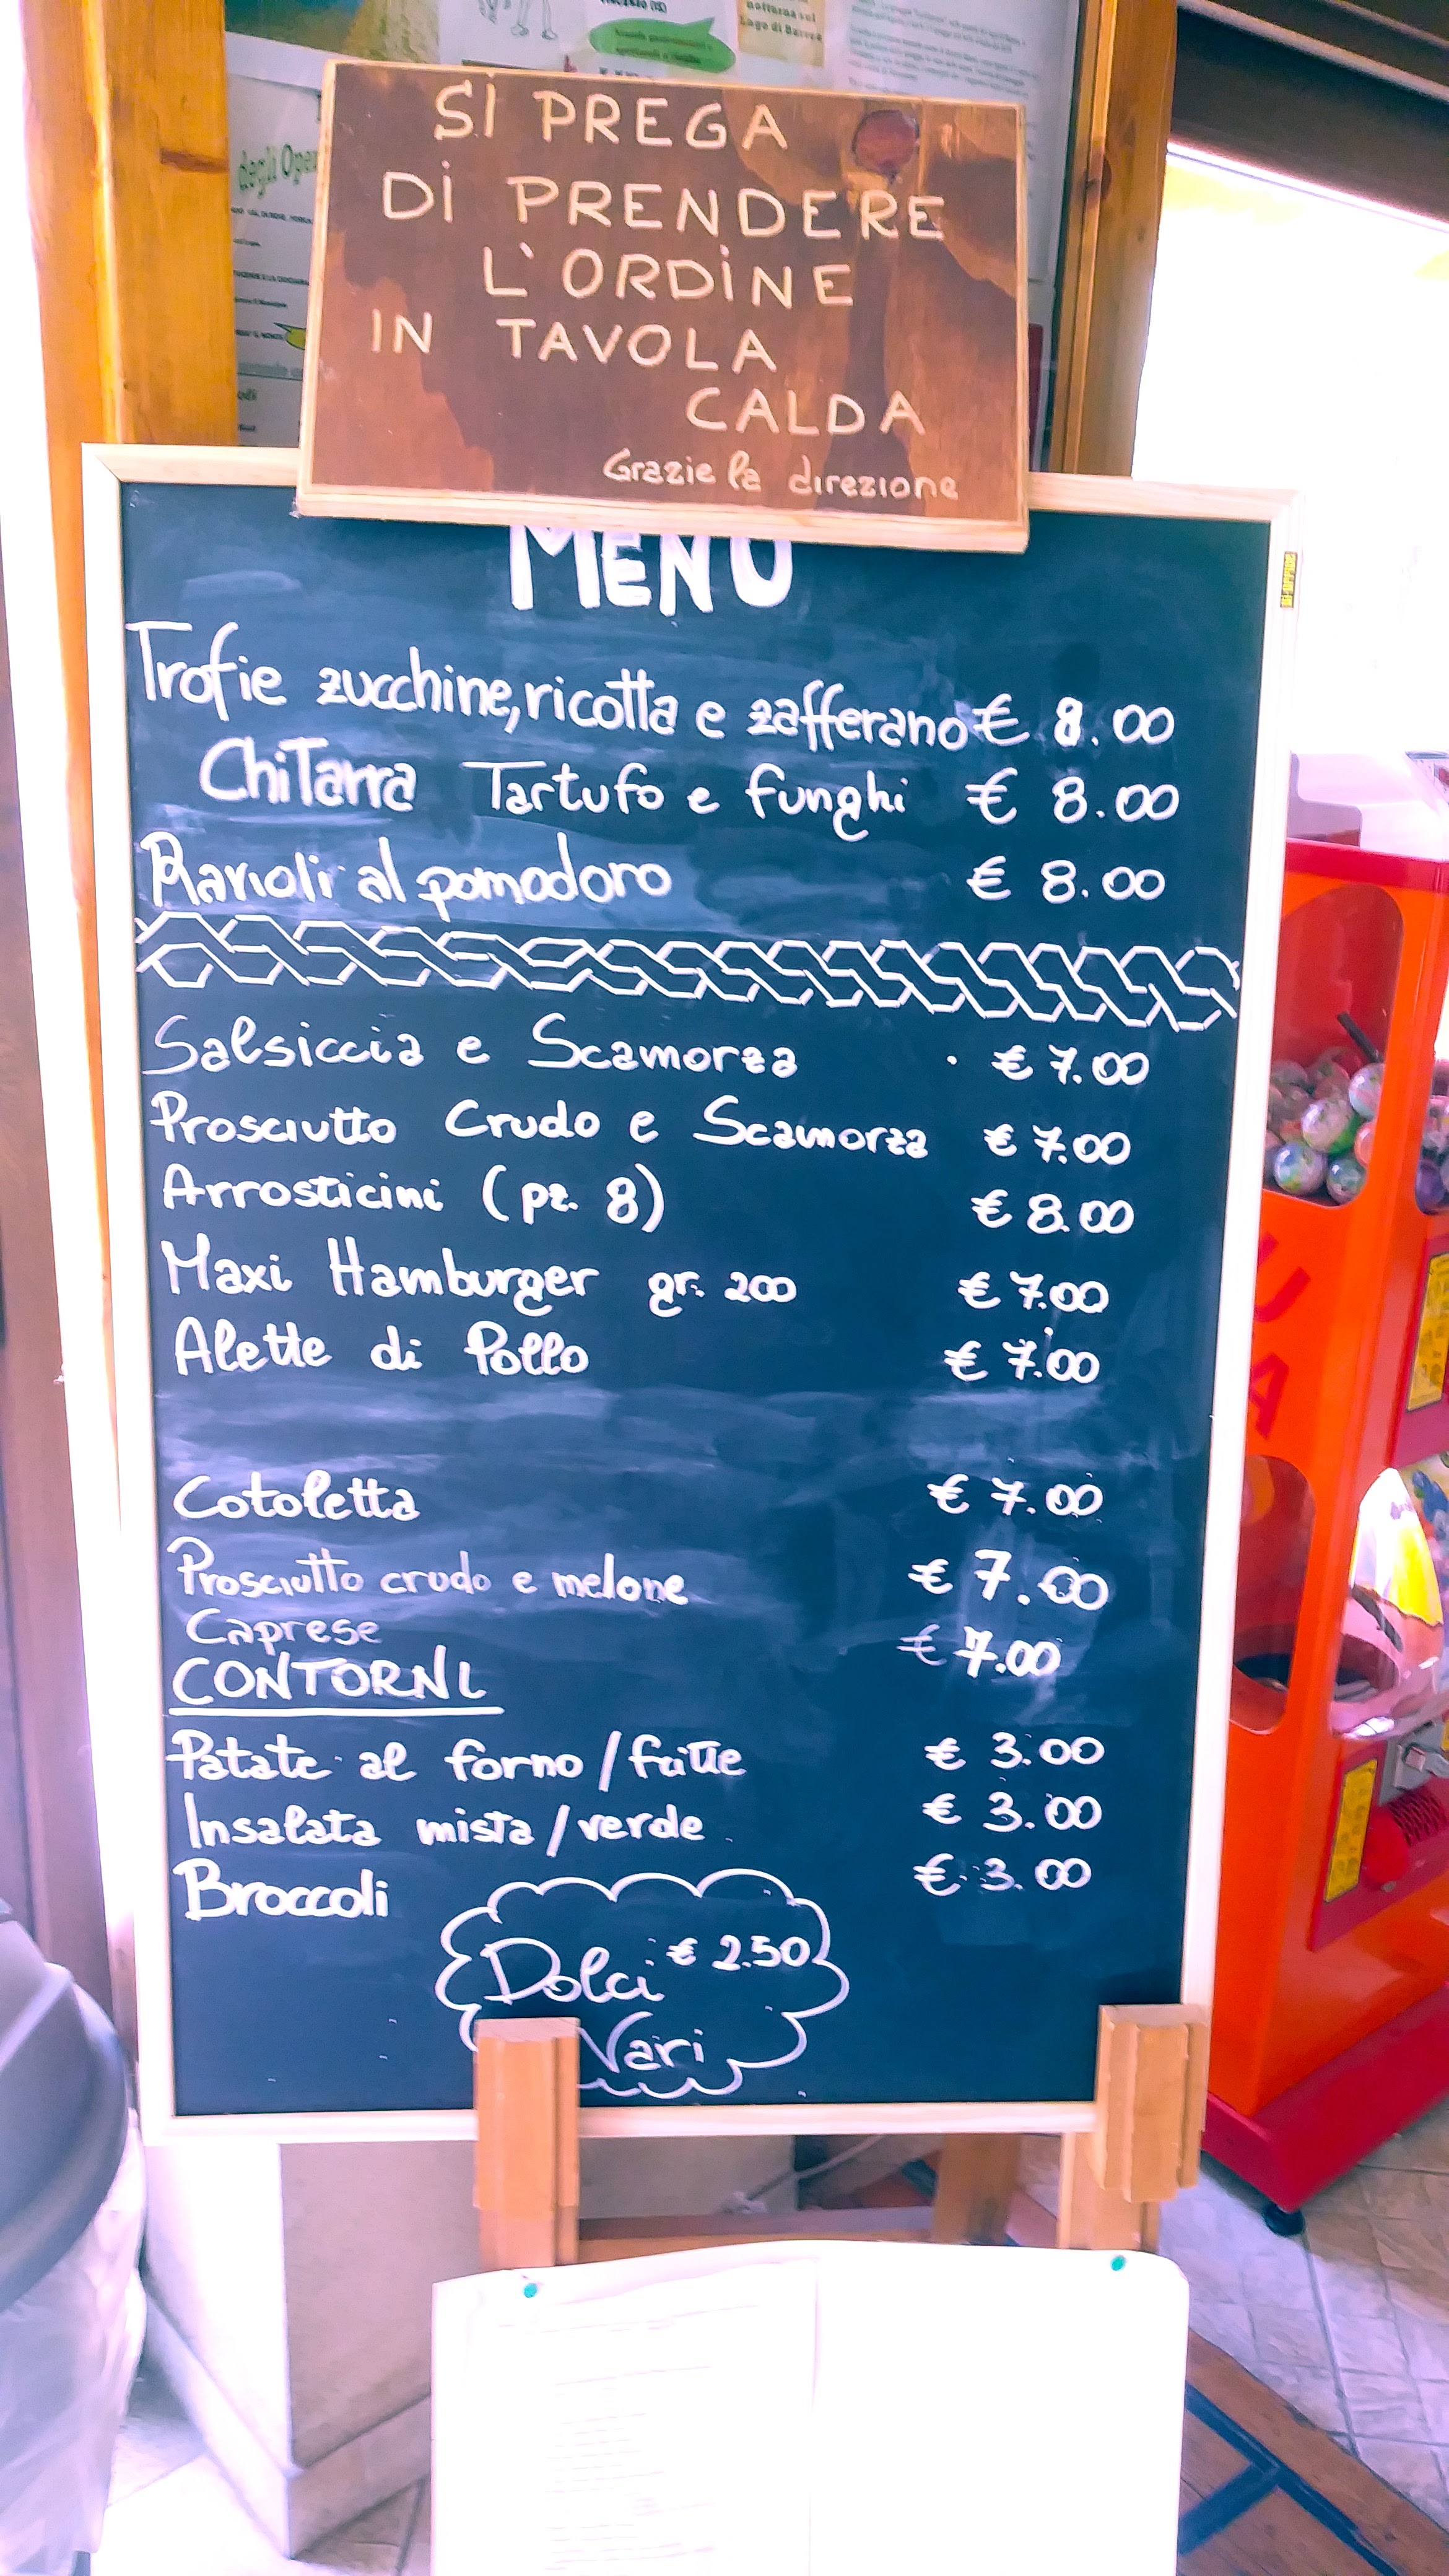 notturna sul
Lago di Barrea
degli Oper
SI PREGA
DI PRENDERE
L'ORDINE
IN TAVOLA
CALDA
Grazie la direzione
MENU
Trofie zucchine, ricotta e zafferano € 8.00
Chitarra Tartufo e funghi € 8.00
Ravioli al pomodoro € 8.00
Salsiccia e Scamorza € 7.00
Prosciutto Crudo e Scamorza € 7.00
Arrosticini (pz. 8) € 8.00
Maxi Hamburger gr. 200 € 7.00
Alette di Pollo € 7.00
Cotoletta € 7.00
Prosciutto crudo e melone € 7.00
Caprese € 7.00
CONTORNI
Patate al forno/fritte € 3.00
Insalata mista/verde € 3.00
Broccoli € 3.00
Dolci € 2.50
Vari